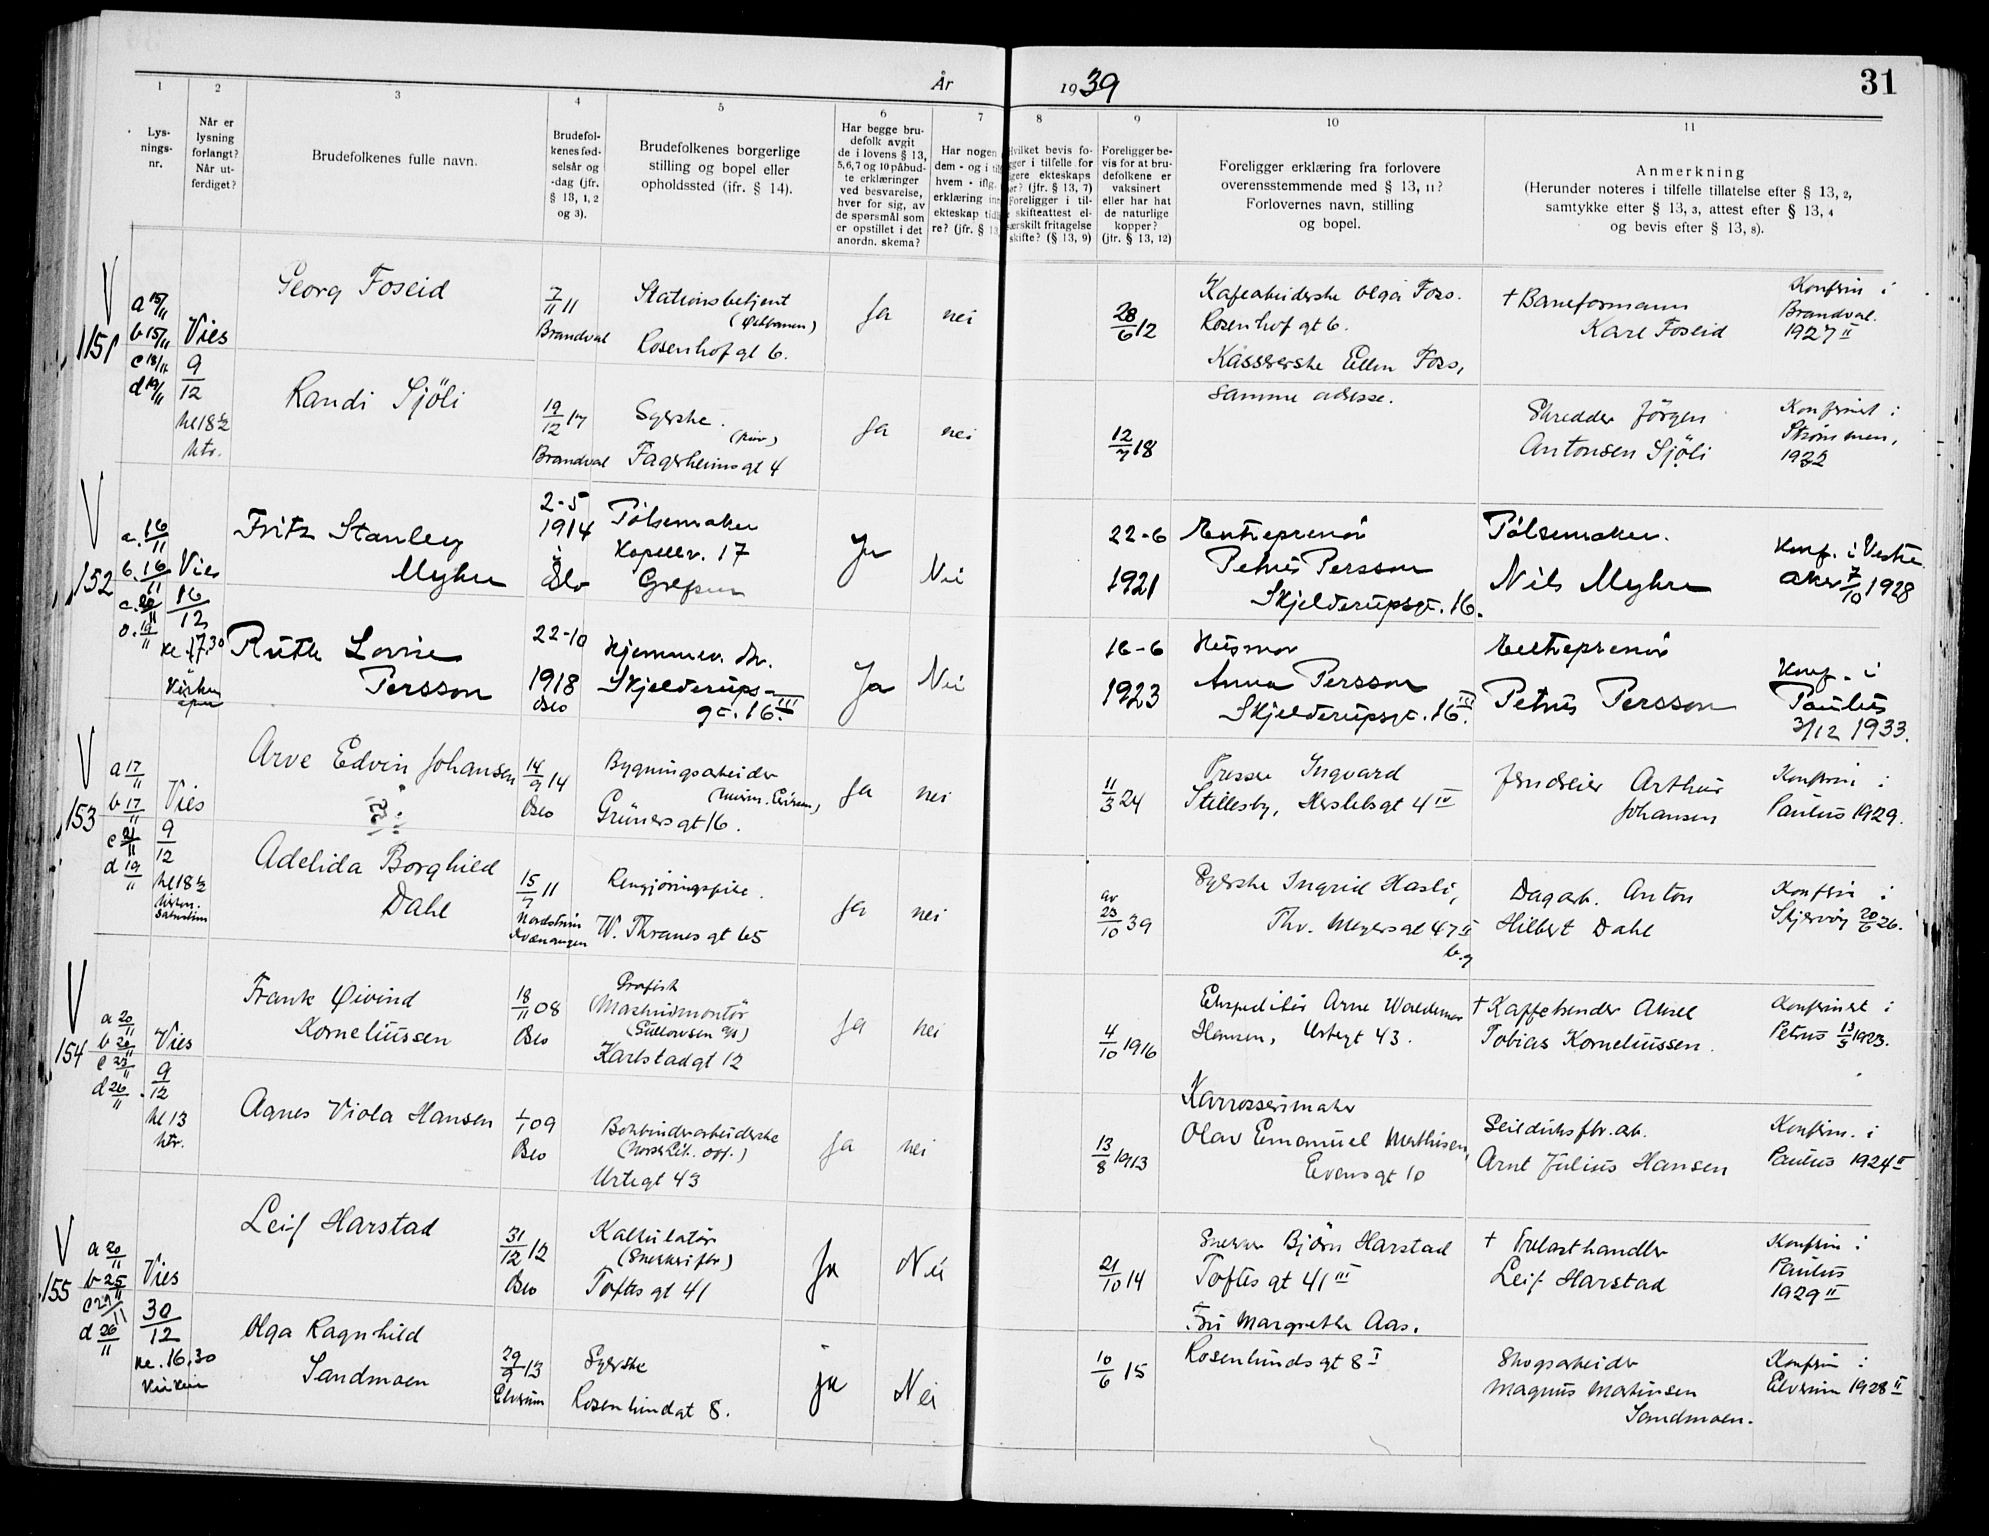 År 1939 31
1 2 3 4 5 6 7 8 9 10 11
Lys-
nings-
nr.
Når er
lysning
forlangt?
Når ut-
ferdiget?
Brudefolkenes fulle navn.
Brudefol-
kenes fød-
selsår og
-dag (jfr.
§ 13, 1, 2
og 3).
Brudefolkenes borgerlige
stilling og bopel eller
opholdssted (jfr. § 14).
Har begge bru-
defolk avgit
de i lovens § 13,
5,6,7 og 10 påbud-
te erklæringer
ved besvarelse,
hver for sig, av
de spørsmål som
er opstillet i det
anordn. skema?
Har nogen
dem - og i til
hvem - iflg.
erklæring inn
ekteskap tidl
re? (jfr. § 13,
Hvilket bevis fo-
gger i tilfelle for
gere ekteskaps
ør? (jfr. § 13, 7)
Foreligger i til-
e skifteattest el-
særskilt fritagelse
skifte? (§ 13, 9)
Foreligger be-
vis for at bru-
defolkene er
vaksinert
eller har hat
de naturlige
kopper?
(jfr. § 13, 12)
Foreligger erklæring fra forlovere
overensstemmende med § 13, 11?
Forlovernes navn, stilling
og bopel.
Anmerkning
(Herunder noteres i tilfelle tillatelse efter § 13, 2,
samtykke efter § 13, 3, attest efter § 13, 4
og bevis efter § 13, 8).
V
151
a 15/11
b 15/11
c 18/11
d 19/11
Vies
9/12
kl 18 1/2
ktr.
Georg Foseid
7/11 11
Brandval
Stationsbetjent
Rosenhof gt 6.
Ja
nei
28/6 12
Kafearbeiderske Olga Foss.
Rosenhof gt 6.
Kasserske Ellen Foss,
samme adresse.
+ Baneformann
Karl Foseid
Konfirm i
Brandval.
1927 II
Randi Sjöli
19/12 17
Brandval
Syerske.
Fagerheimsgt 4
Ja
nei
12/7 18
Skredder Jörgen
Antonsen Sjöli
Konfirmert i
Strømmen,
1932
V
152
a. 16/11
b. 16/11
d. 19/11
Vies
16/12
kl. 17.30
Fritz Stanley
Myhre
2-5
1914
i
Oslo
Pølsemaker
Kapellv. 17
Grefsen
Ja
Nei
22-6
1921
Entreprenør
Petrus Persson
Skjelderupsgt. 16.
Pølsemaker.
Nils Myhre
Konf. i Vestre
Aker 7/10 1928
Ruth Lovise
Persson
22-10
1918
Oslo
Hjemmev. dtr.
Skjelderups-
gt. 16 III.
Ja
Nei
16-6
1923
Husmor
Anna Persson
Skjelderupsgt. 16 III.
Entreprenør
Petrus Persson
Konf. i
Paulus
3/12 1933.
V
153
a 17/11
b 17/11
c 21/11
d 19/11
Vies
9/12
kl 18 1/2
Arve Edvin Johansen
14/9 14
Oslo
Bygningsarbeider
Grünersgt 16.
Ja
nei
11/3 24
Presser Ingvard
Stillesby, Herslebsgt 4 IV
Jerndreier Arthur
Johansen
Konfirm i
Paulus 1929.
Adelida Borghild
Dahl
15/7 11
Kvænangen
Rengjøringspike.
W. Thranes gt 65
Ja
nei
av
23/10 39
Syerske Ingrid Hasli,
Thv. Meyersgt 47 II
b.g
Dagarb. Anton
Hilbert Dahl
Konfirm i
Skjervøy 20/6 26.
V
154
a 20/11
b 20/11
c 23/11
d 26/11
Vies
9/12
kl 13
ktr.
Frank Øivind
Korneliussen
18/11 08
Oslo
Grafisk
Maskinmontör
Karlstadgt 12
Ja
nei
4/10 1916
Ekspeditör Arne Waldemar
Hansen, Urtegt 43.
+ Kaffebrenner Aksel
Tobias Korneliussen.
Konfirmert i
Petrus 13/5 1923.
Agnes Viola Hansen
1/1 09
Oslo
Bokbinderarbeiderske
(Norsk Lit. Off.)
Urtegt 43
Ja
nei
13/8 1913
Karrosserimaker
Olav Emanuel Mathisen,
Evensgt 10
Seilduksfbr. arb.
Arnt Julius Hansen
Konfirm. i
Paulus 1924 II
V
155
a 20/11
b 25/11
c 29/11
d 26/11
Vies
30/12
kl. 16.30
Leif Harstad
31/12 12
Oslo
Kalkulatør
Toftes gt 41
Ja
Nei
21/10 14
Snekker Björn Harstad
Toftes gt 41 III
Fru Margrethe Aas.
Rosenlundsgt 8 I
+ Trelasthandler
Leif Harstad
Konfirm i
Paulus
1929 II
Olga Ragnhild
Sandmoen
29/9 13
Elverum
Syerske
Rosenlundgt 8.
ja
Nei
10/6 15
Skogsarbeider
Magnus Martinsen
Sandmoen.
Konfirm i
Elverum 1928 II